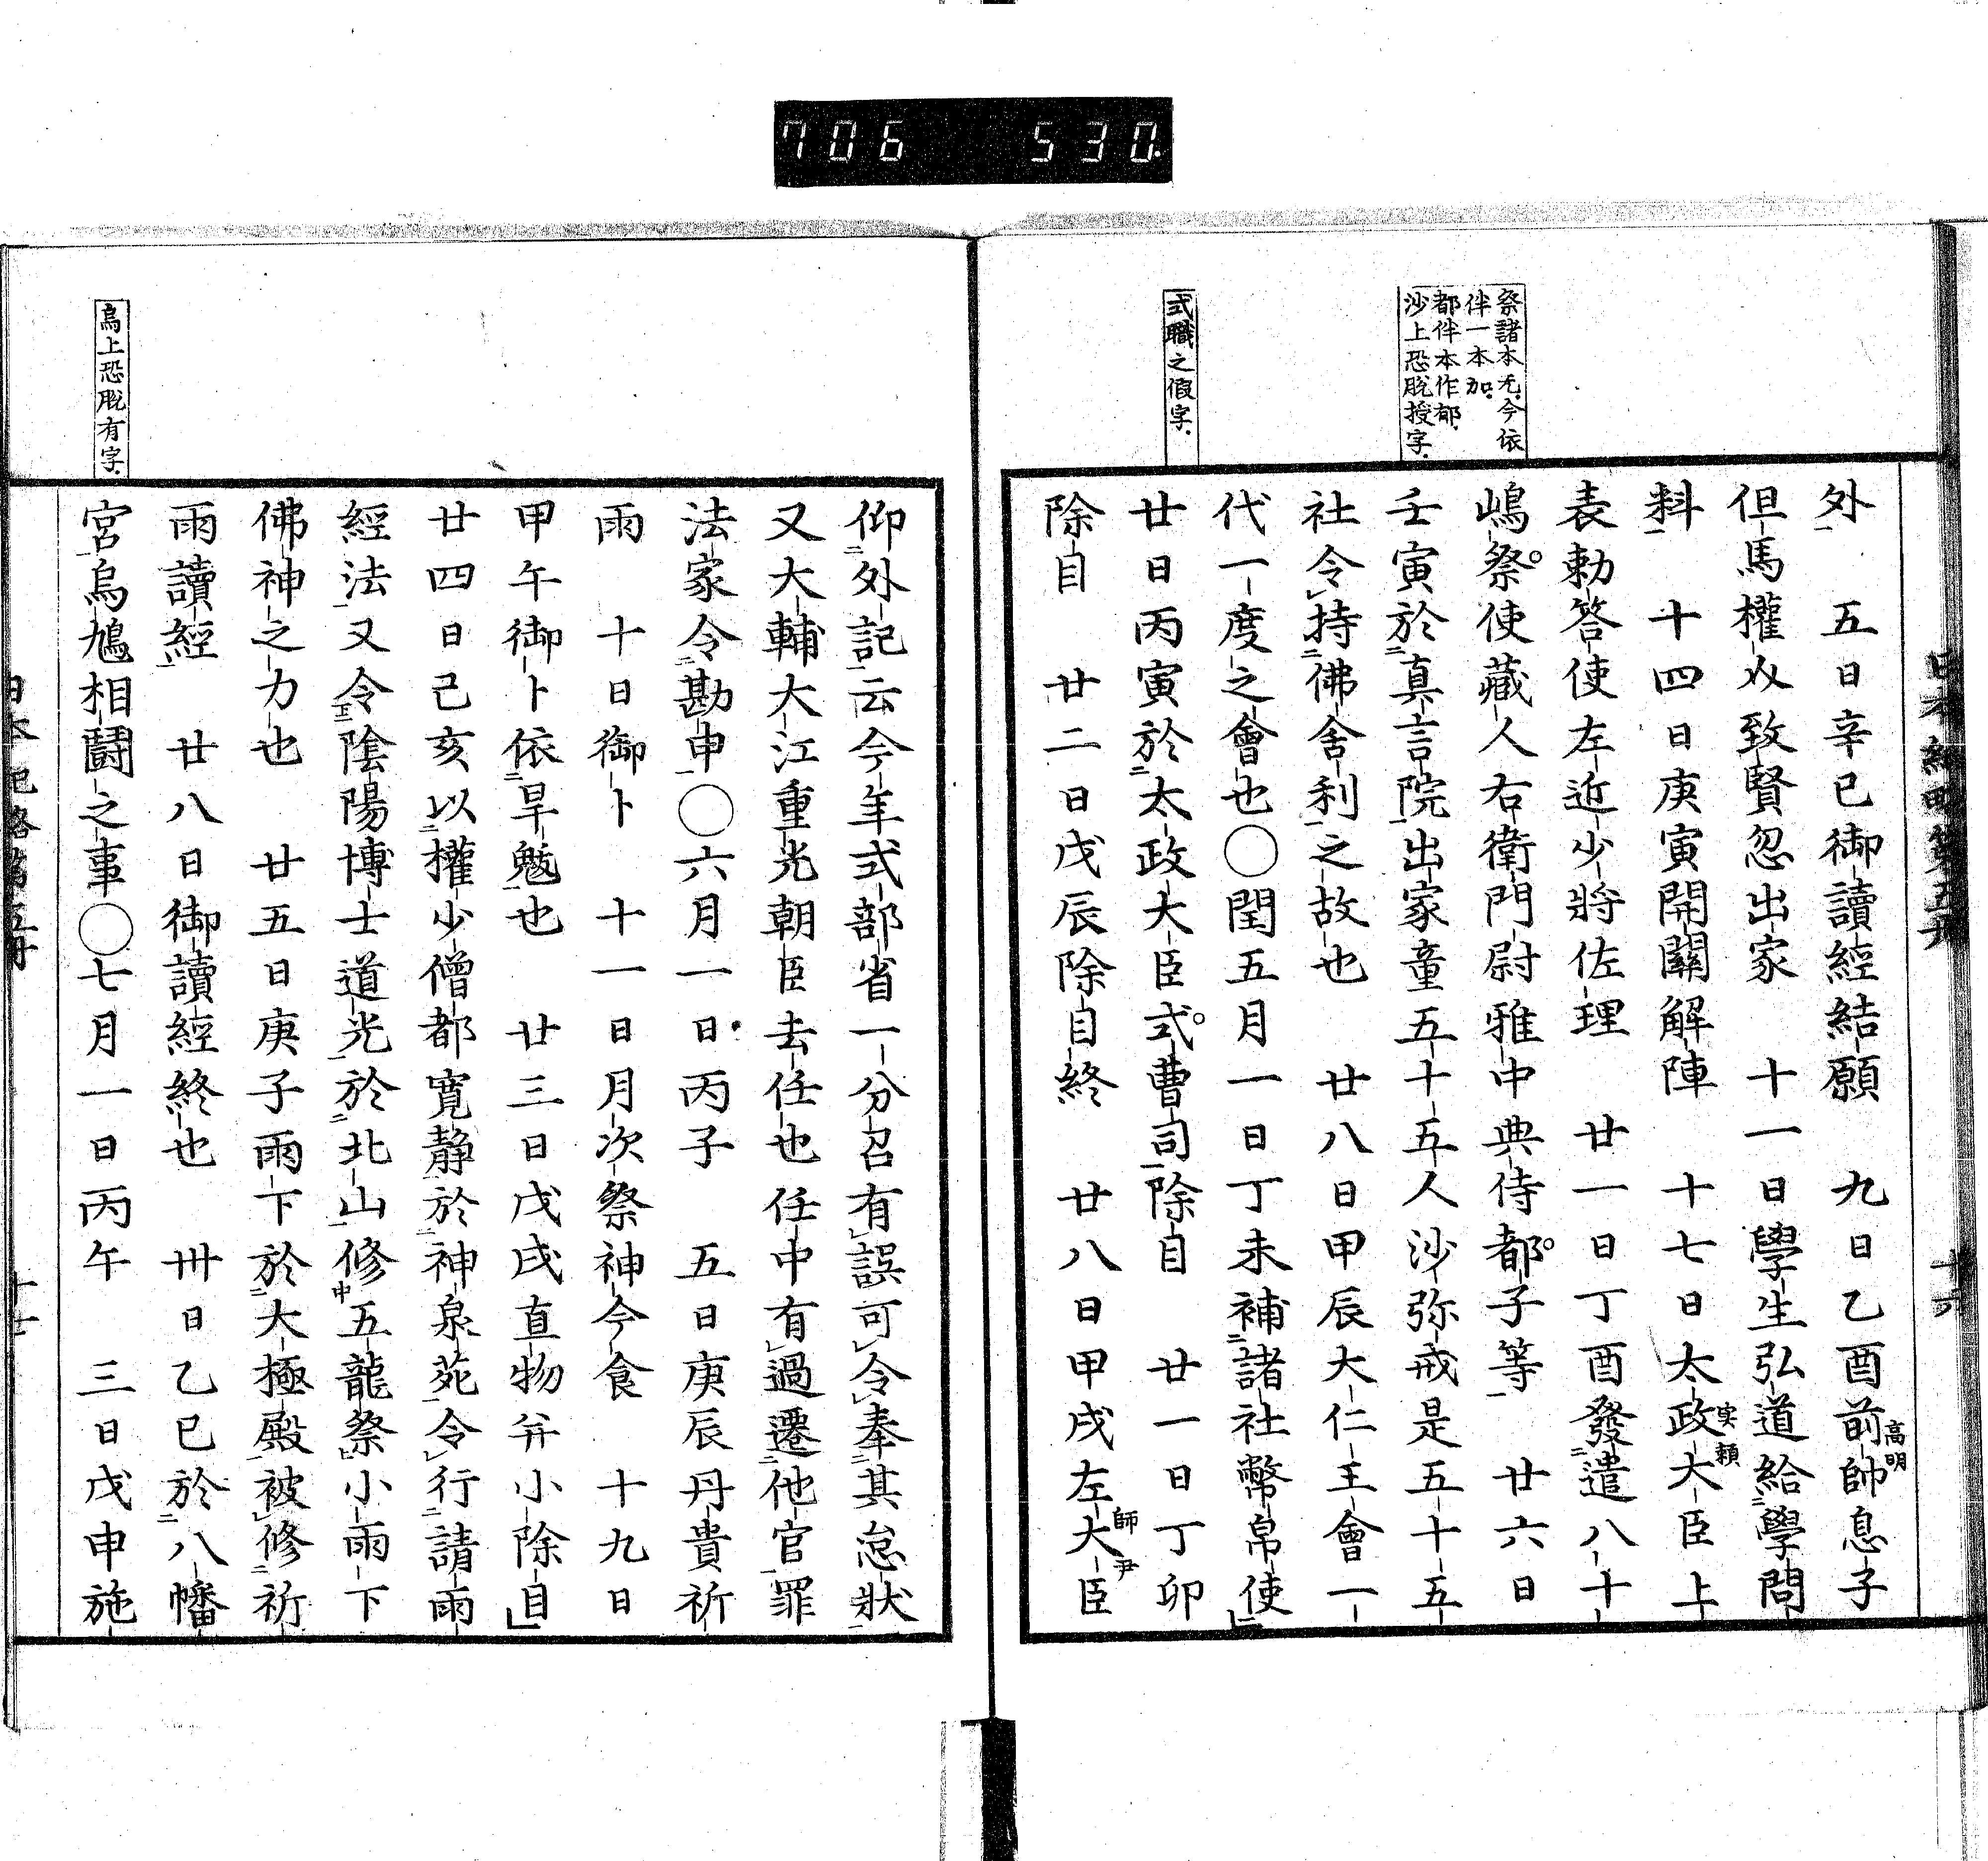 706 530
祭諸本无今依
伴一本加
都伴本作郁
沙上恐脱授字
式職之假字
外　五日辛巳御讀經結願　九日乙酉前帥息子
高明
但馬權从致賢忽出家　十一日學生弘道給學問
料　十四日庚寅開關解陣　十七日太政大臣上
実頼
表勅答使左近少將佐理　廿一日丁酉發遣八十
嶋祭使藏人右衛門尉雅中典侍都子等　廿六日
壬寅於真言院出家童五十五人沙弥戒是五十五
社令持佛舍利之故也　廿八日甲辰大仁王會一
代一度之會也〇閏五月一日丁未補諸社幣帛使
廿日丙寅於太政大臣式曹司除目　廿一日丁卯
除目　廿二日戊辰除目終　廿八日甲戌左大臣
師尹
仰外記云今年式部省一分召有誤可令奉其怠狀
又大輔大江重光朝臣去任也任中有過遷他官罪
法家令勘申〇六月一日丙子　五日庚辰丹貴祈
雨　十日御卜　十一日月次祭神今食　十九日
甲午御卜依旱魃也　廿三日戊戌直物并小除目
廿四日己亥以權少僧都寛静於神泉苑令行請雨
經法又令陰陽博士道光於北山修五龍祭小雨下
佛神之力也　廿五日庚子雨下於大極殿被修祈
雨讀經　廿八日御讀經終也　卅日乙巳於八幡
宮烏鳩相鬪之事〇七月一日丙午　三日戊申施
烏上恐脱有字